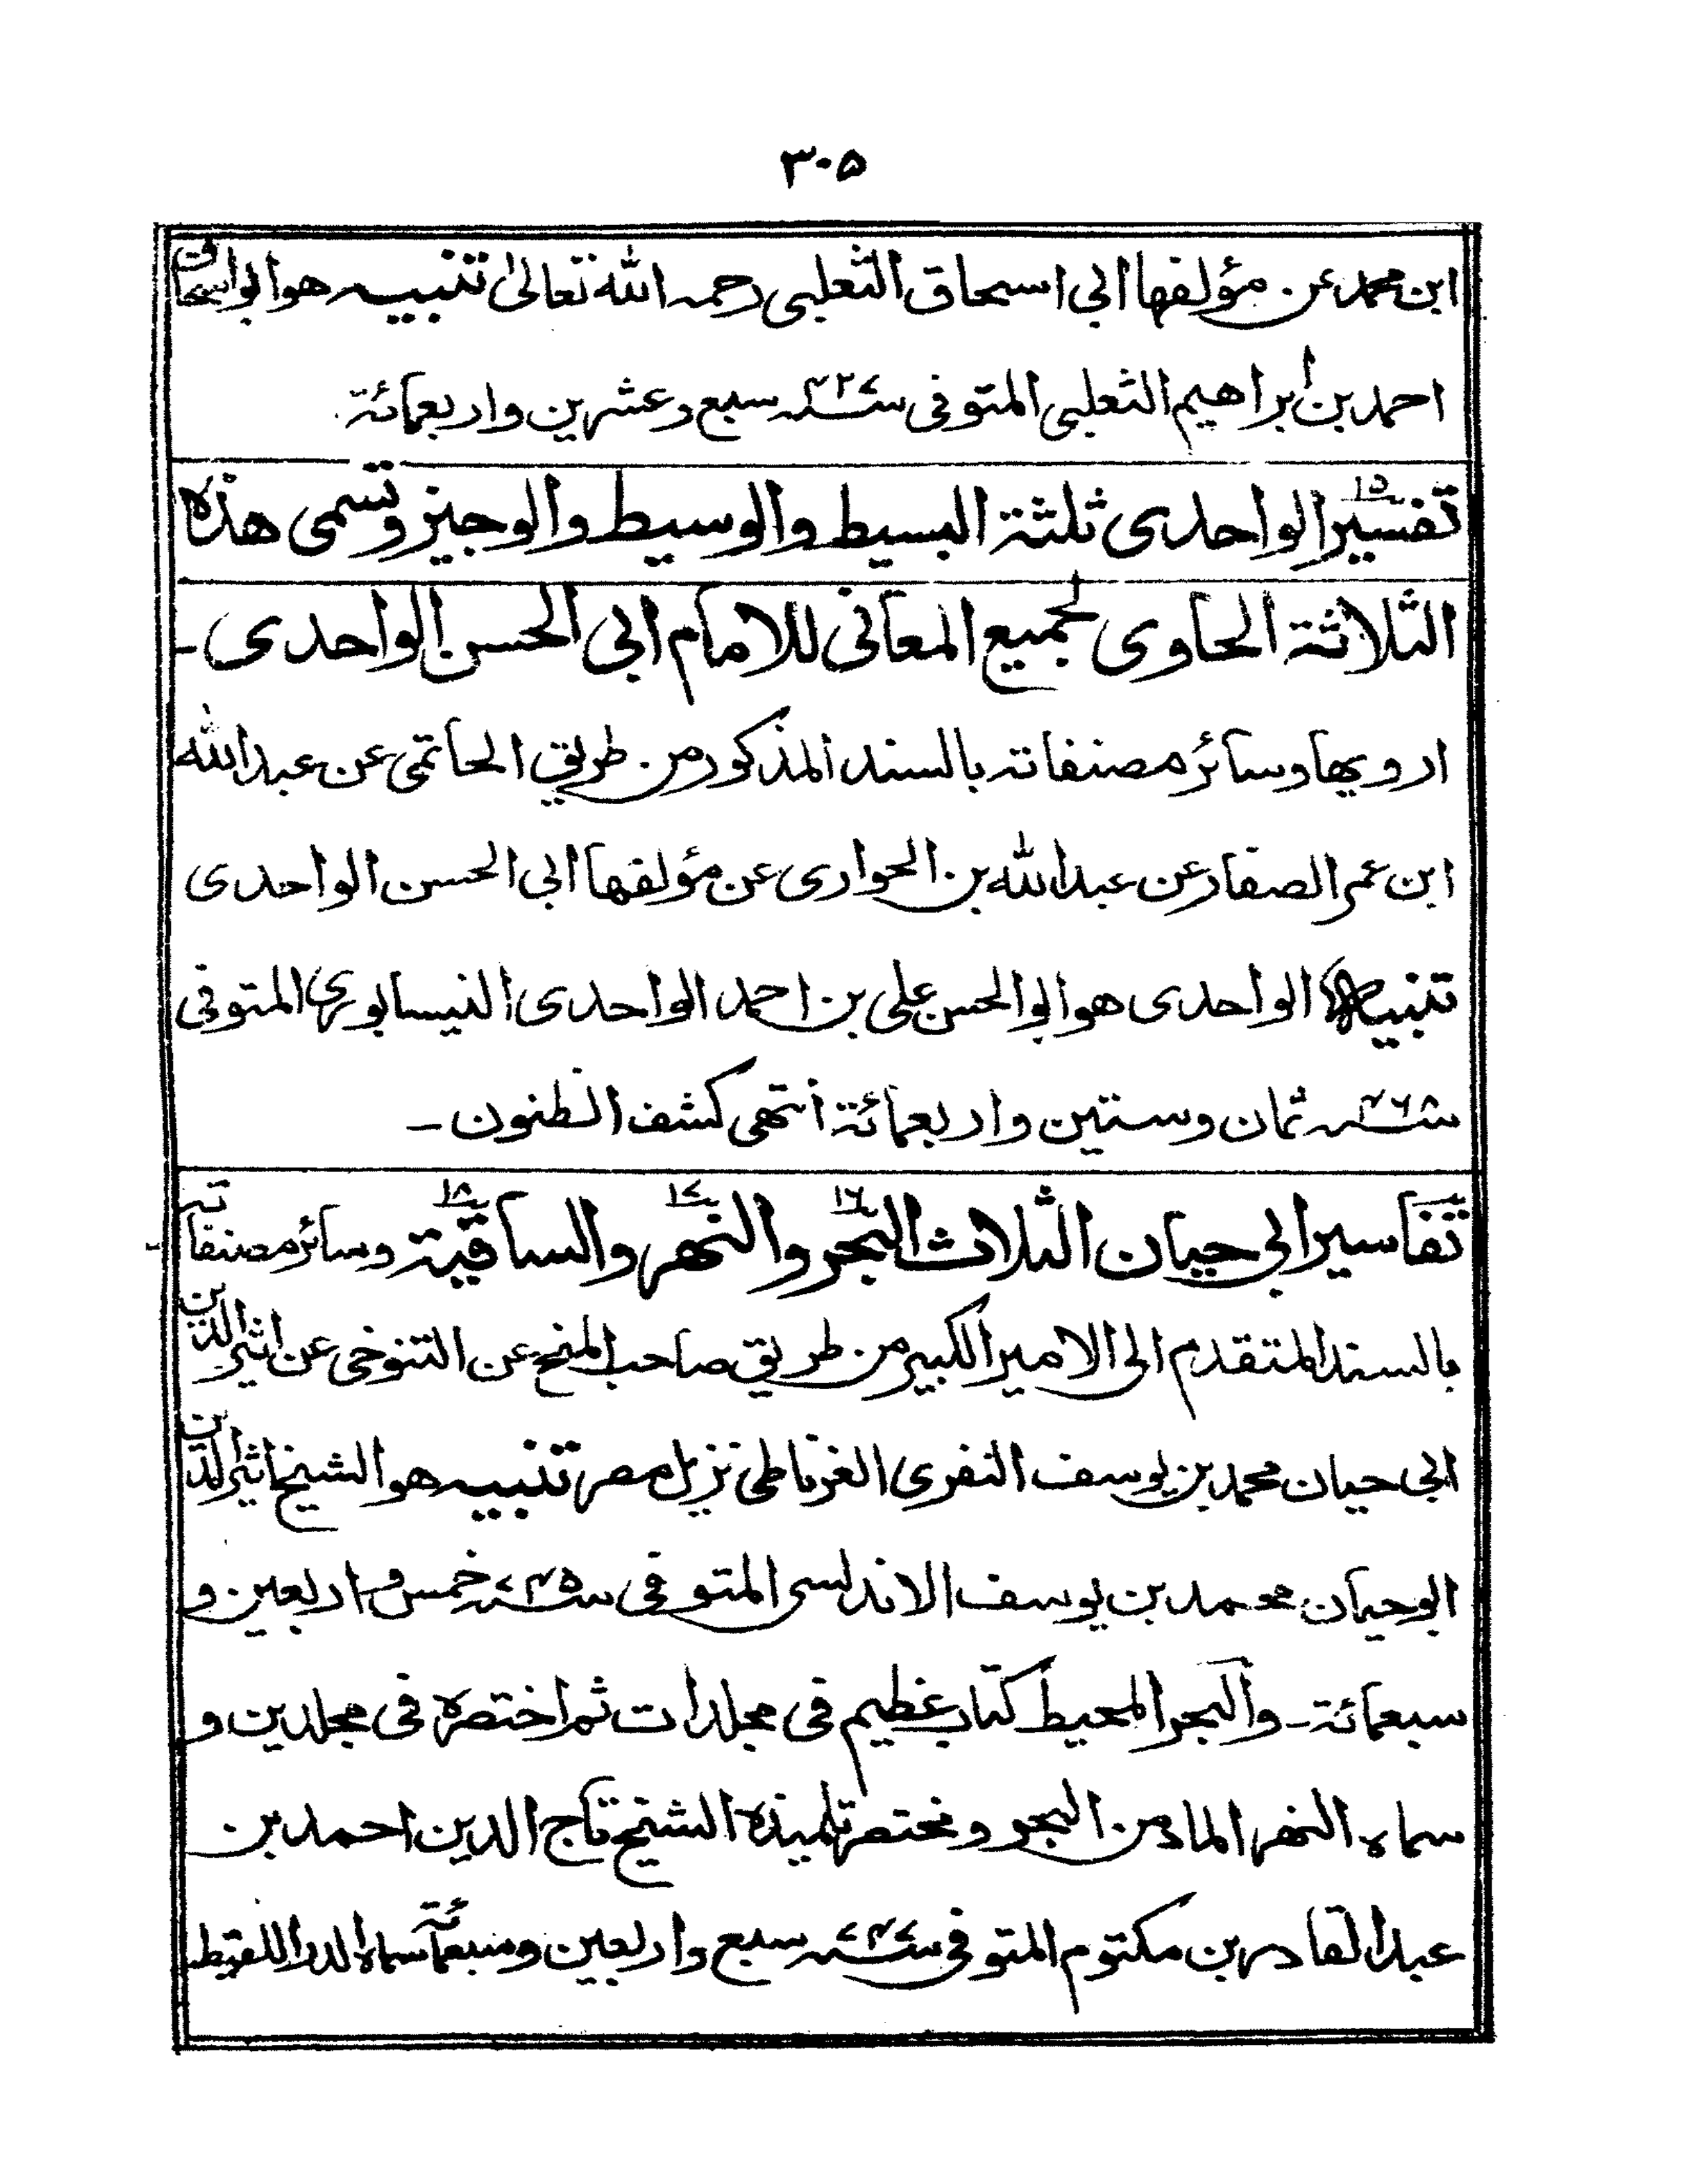 ٣٠٥
ابن محمد عن مؤلفها ابي اسحاق الثعلبى رحمه الله تعالىٰ تنبيه هو ابو اسحاق
احمد بن ابراهيم الثعلبى المتوفى سنه ٤٢٧ سبع وعشرين واربعمائة
تفسير ١٥ الواحدى ثلثة البسيط والوسيط والوجيز وتسمى هذه
الثلاثة الحاوى لجميع المعانى للامام ابى الحسن الواحدى -
ارويها وسائر مصنفاته بالسند المذكور من طريق الحاتمى عن عبد الله
ابن عمر الصفار عن عبد الله بن الحوارى عن مؤلفها ابى الحسن الواحدى
تنبيه الواحدى هو ابو الحسن على بن احمد الواحدى النيسابورى المتوفى
سنه ٤٦٨ ثمان وستين واربعمائة انتهى كشف الظنون -
تفاسير ابى حيان الثلاث البحر ١٦ والنهر ١٧ والساقية ١٨ وسائر مصنفاته
بالسند المتقدم الى الامير الكبير من طريق صاحب المنح عن التنوخى عن اثير الدين
ابى حيان محمد بن يوسف النفرى الغرناطى نزيل مصر تنبيه هو الشيخ اثير الدين
ابو حيان محمد بن يوسف الاندلسى المتوفى سنه ٧٤٥ خمس و اربعين و
سبعمائة - والبحر المحيط كتاب عظيم فى مجلدات ثم اختصره فى مجلدين و
سماه النهر الماد من البحر و مختصر تلميذه الشيخ تاج الدين احمد بن
عبد القادر بن مكتوم المتوفى سنه ٧٤٧ سبع واربعين وسبعمائة سماه الدر اللقيط